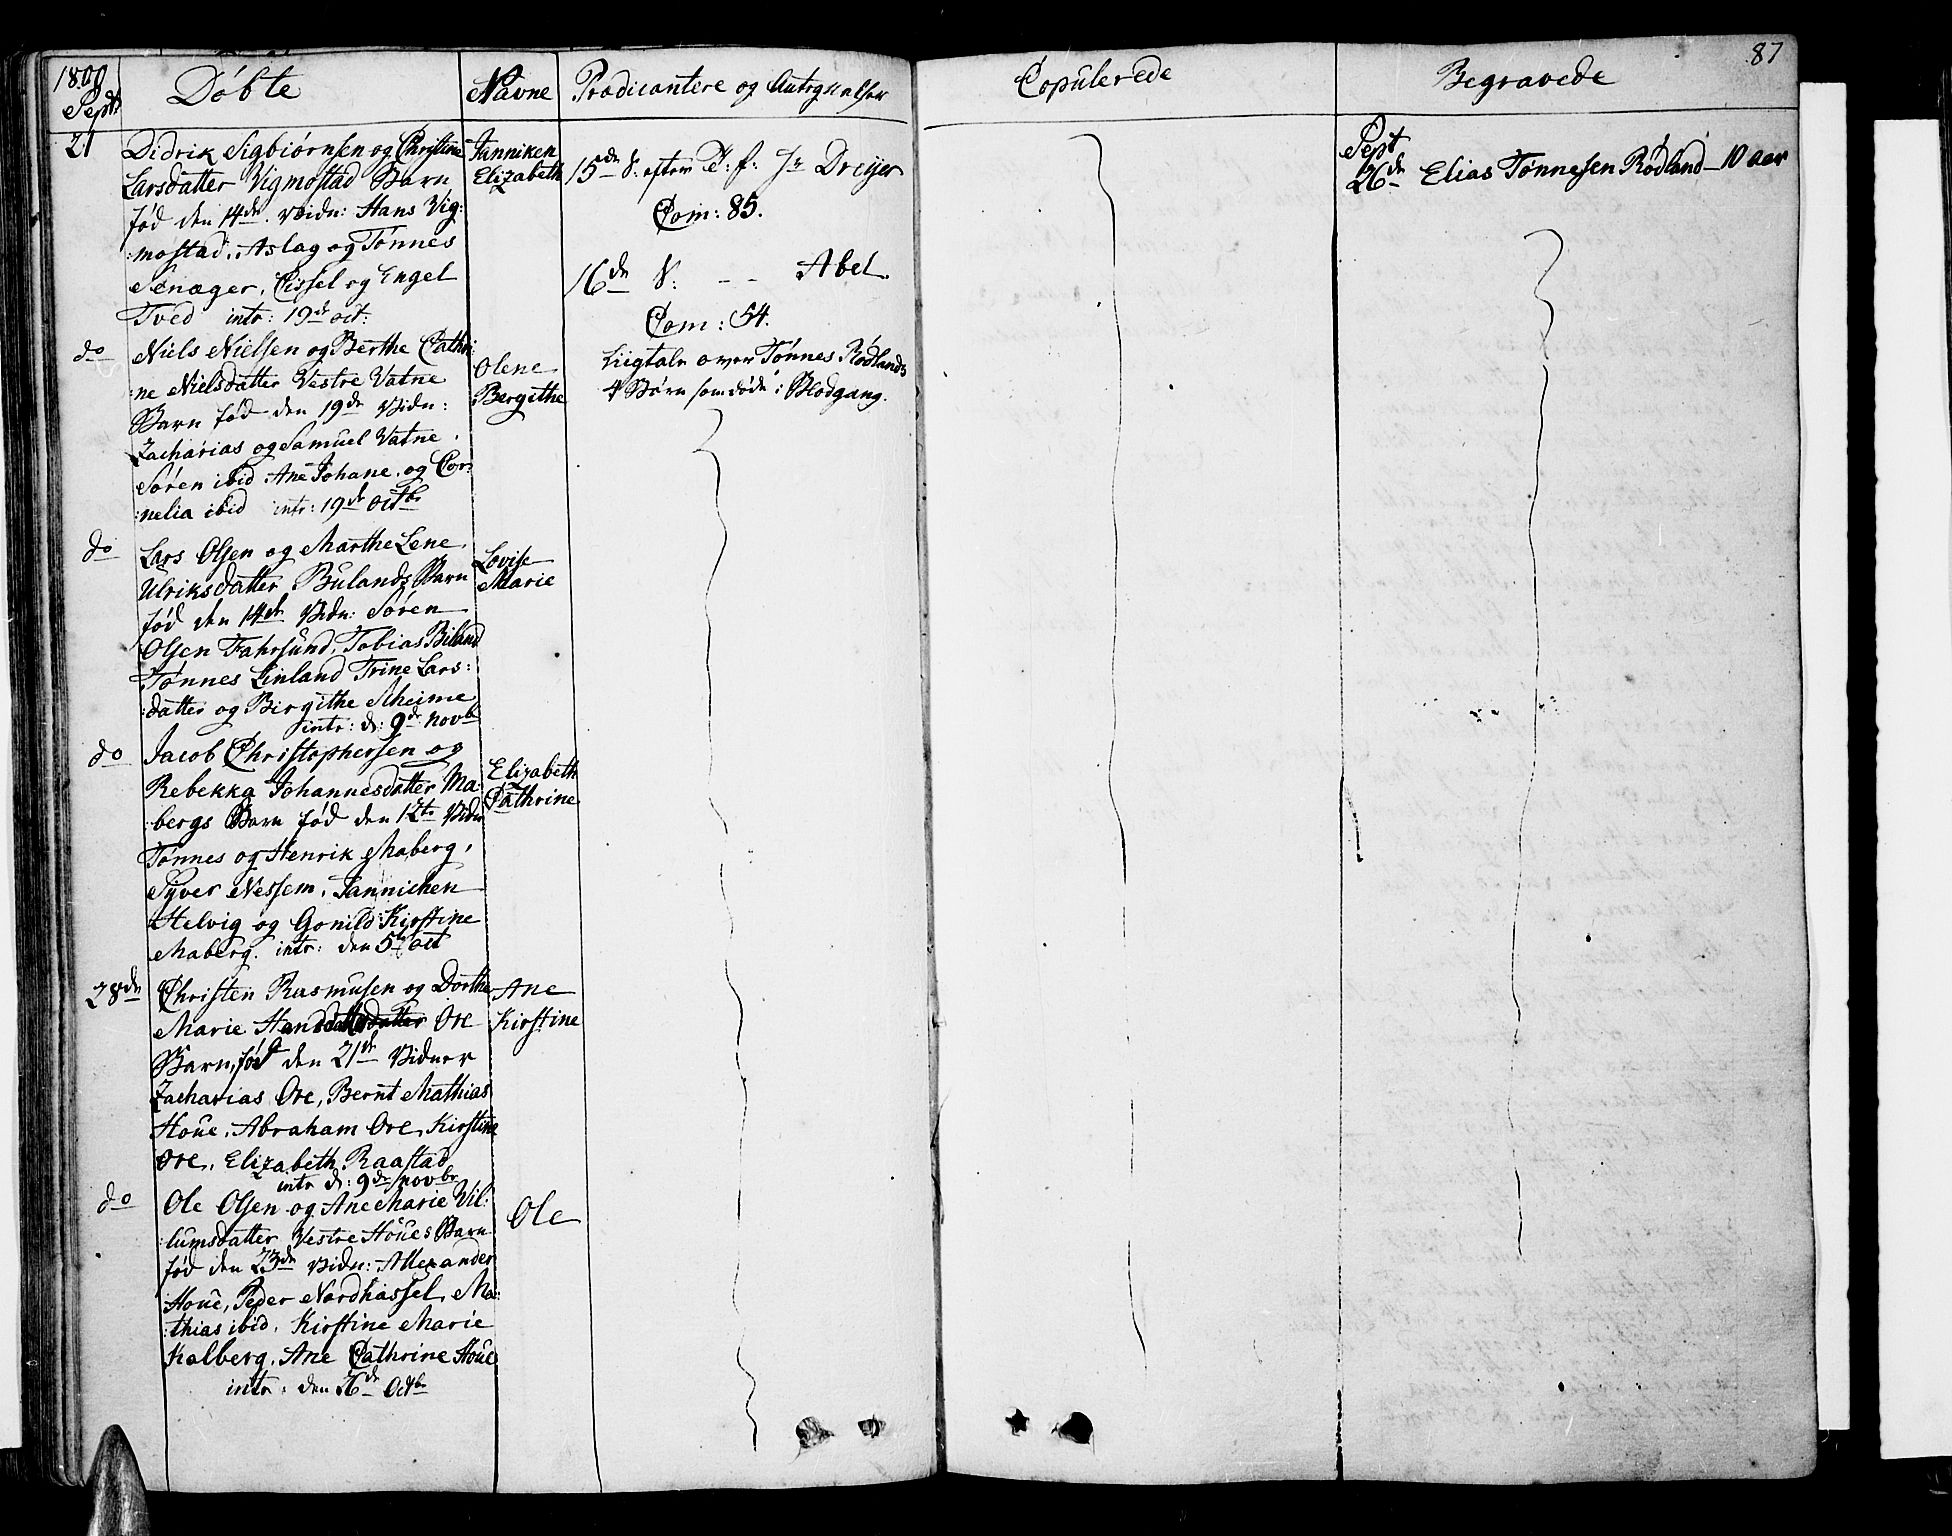 1800
Septr
Döbte
Navne
Prædicantere og
Copulerede
Begravede
87
21
Didrik Sigbiörnsen og Christine
Larsdatter Vigmostad Barn
föd den 14de. Vidn: Hans Vig:
:mostad, Aslag og Tönnes
Senæger, Cissel og Engel
Tved intr: 19de oct:
Janniken
Elizabeth
do
Niels Nielsen og Berthe Cathri:
:ne Nielsdatter Vestre Vatne
Barn föd den 19de Vidn:
Zacharias og Samuel Vatne,
Sören ibid Ane Johane, og Cor:
:nelia ibid intr: 19de Octbr
Olene
Bergithe
do
Lars Olsen og Marthe Lene
Ulriksdatter Bulands Barn
föd den 14de Vidn: Sören
Olsen Fahrsund, Tobias Biland
Tönnes Linland Trine Lars:
:datter og Birgithe Meime
intr: d: 9de Novbr
Lovise
Marie
do
Jacob Christophersen og
Rebekka Johannesdatter Ma:
:bergs Barn föd den 12te Vidn
Tönnes og Henrik Maberg,
Syver Nessem, Jannichen
Helvig og Gonild Kirstine
Maberg. intr: den 5te oct
Elizabeth
Cathrine
28de
Christen Rasmusen og Dorthe
Marie Ore
Barn, föd den 21de Vidner
Zacharias Ore, Bernt Mathias
Houe, Abraham Ore, Kirstine
Ore, Elizabeth Raastad
intr d: 9de Novbr
Ane
Kirstine
do
Ole Olsen og Ane Marie Vil:
:lumsdatter Vestre Houes Barn
föd den 23de Vidn: Allexander
Houe, Peder Nordhassel, Ma:
:thias ibid, Kirstine Marie
Kalberg, Ane Cathrine Houe
intr: den 26de Octbr
Ole
15de S: efter T: f: Hr Dreyer
Com: 85.
16de S: - - Abel
Com: 54.
Liigtale over Tönnes Rödlands
4 Börn som döde i Blodgang.
Sept
26de Elias Tönnesen Rödland - 10 aar